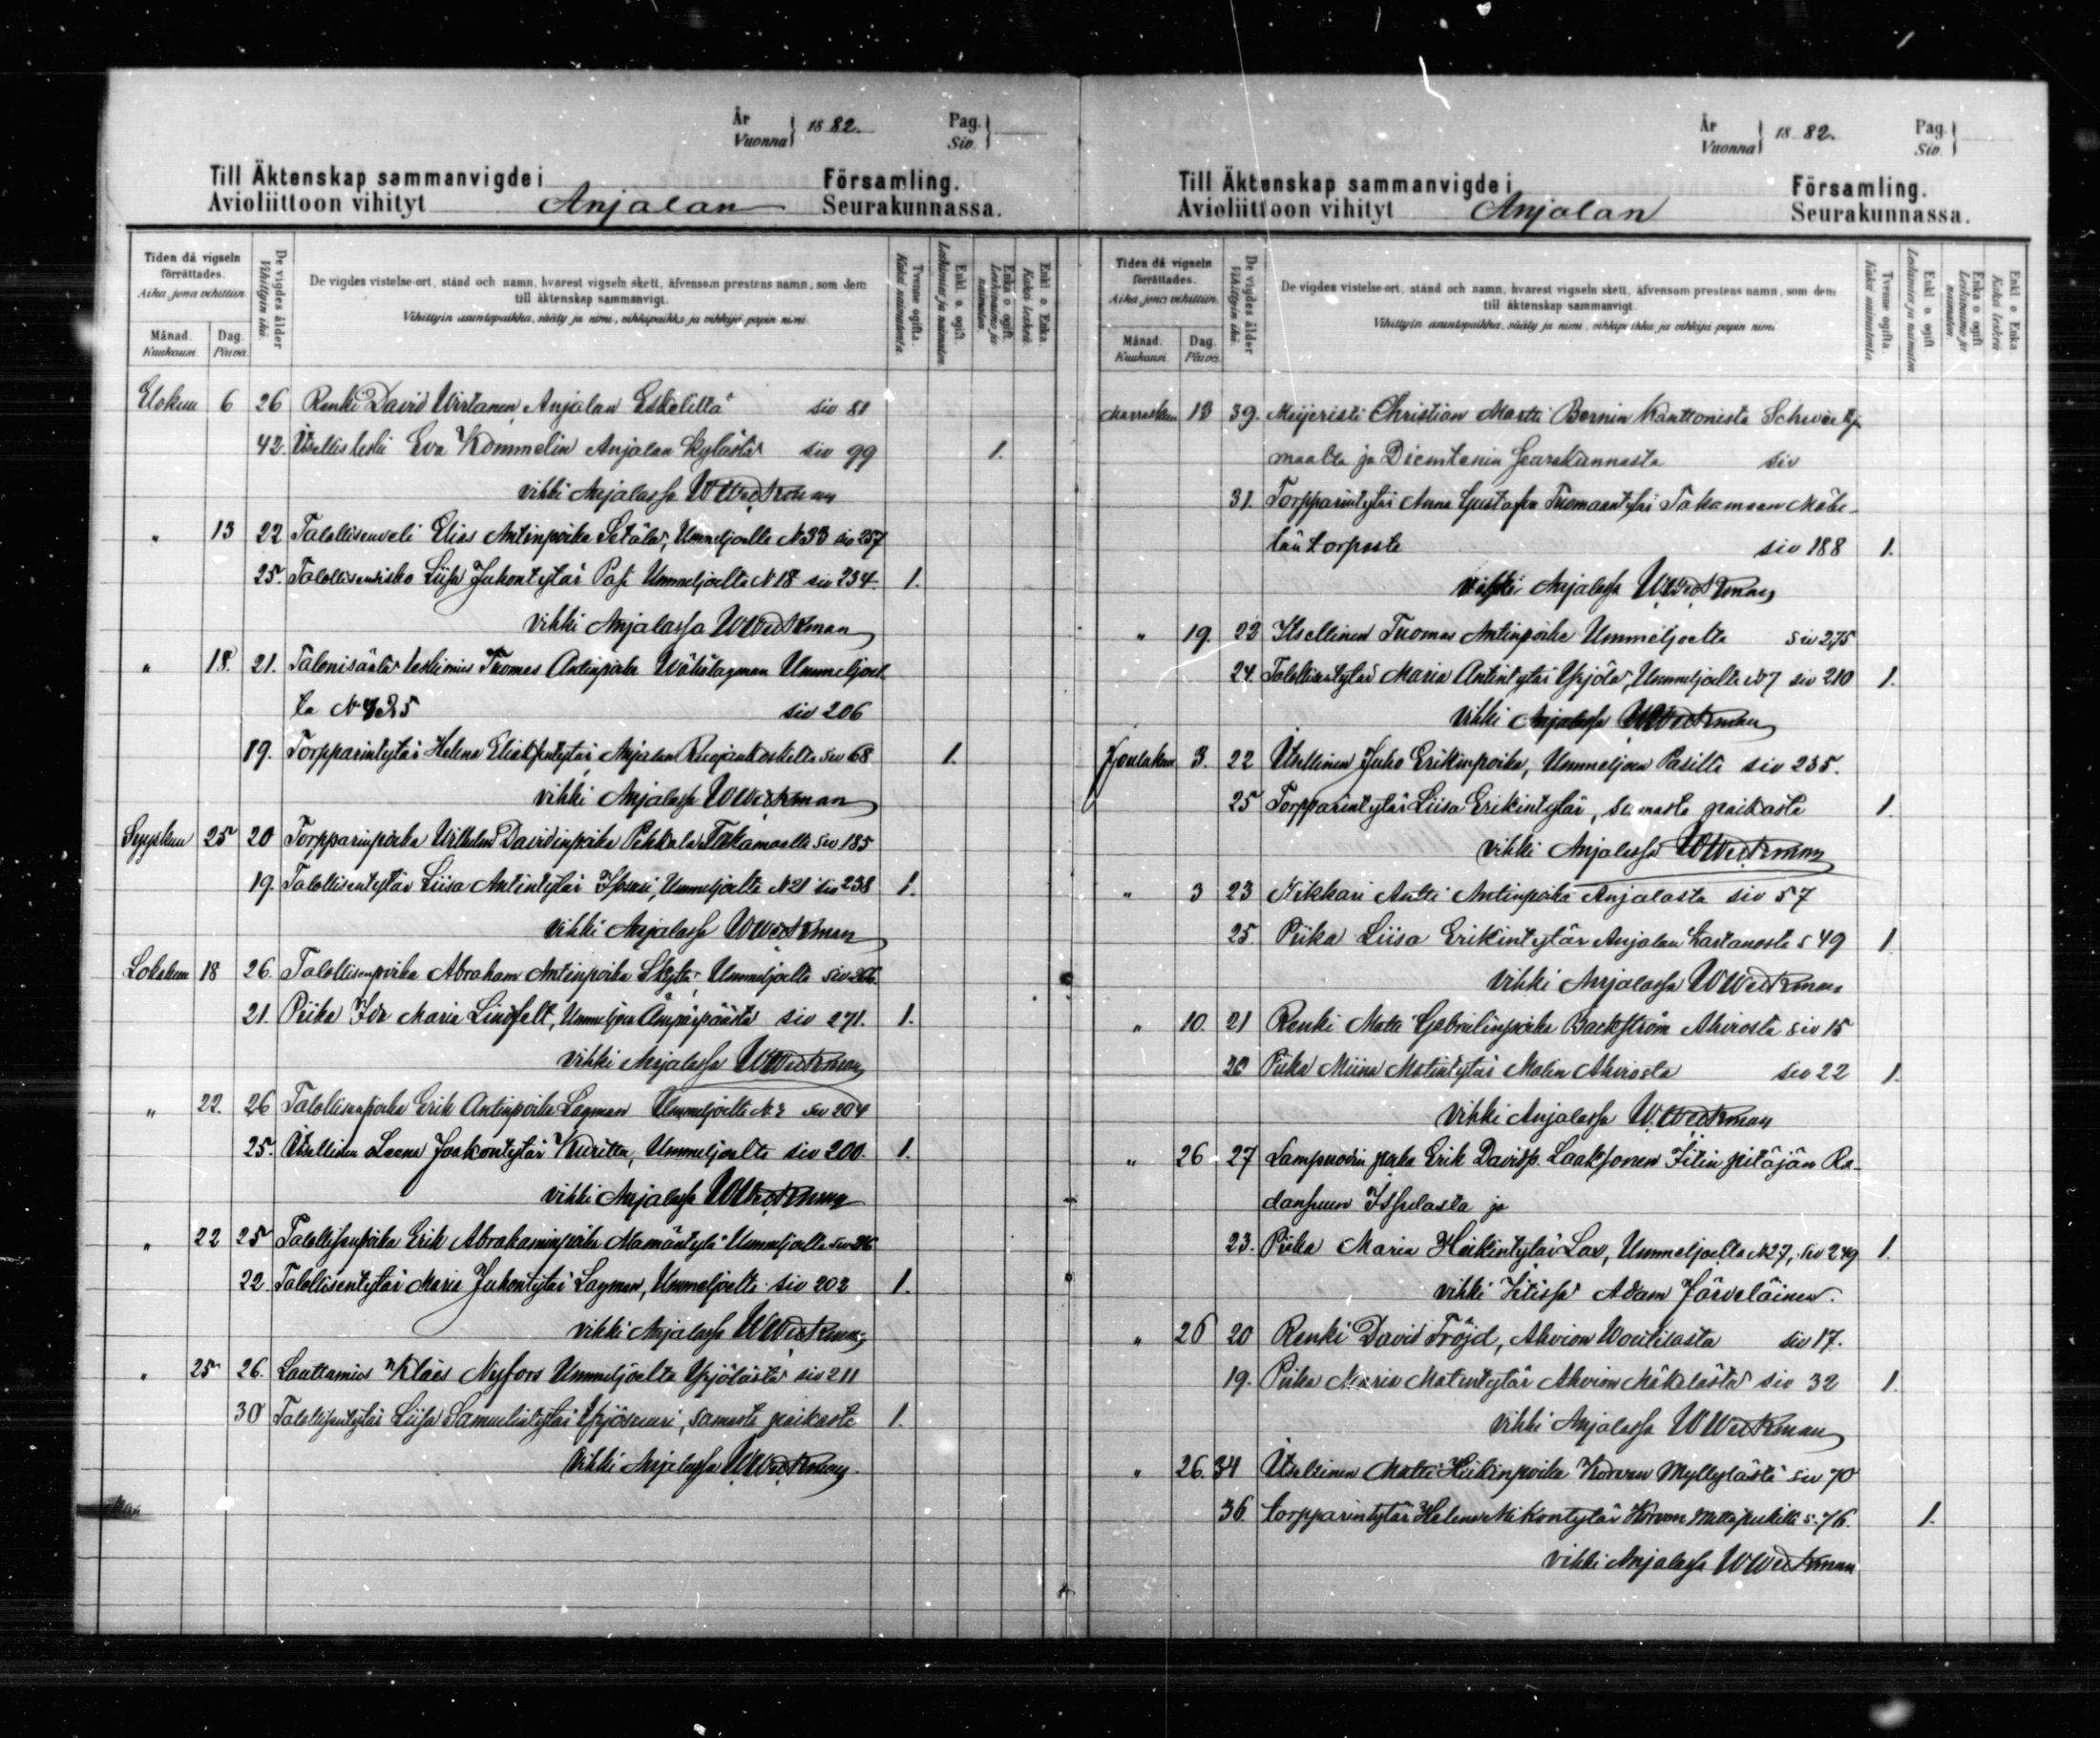 År
Vuonna 1882.
Pag.
Siv.
Till Äktenskap sammanvigde i Församling.
Avioliittoon vihityt Anjalan Seurakunnassa.
Tiden då vigseln förrättades.
Aika, jona vihittiin.
Månad. Kuukausi.
Dag. Päivä.
De vigdes ålder
Vihittyin ikä.
De vigdes vistelse-ort, stånd och namn, hvarest vigseln skett, äfvensom prestens namn, som dem
till äktenskap sammanvigt.
Vihittyin asuntopaikka, sääty ja nimi, vihkipaikka ja vihkijä papin nimi.
Tvenne ogifta.
Kaksi naimatonta.
Enkl. o. ogift.
Leskimies ja naimaton.
Enka o. ogift.
Leskivaimo ja naimaton.
Enkl. o. Enka.
Kaksi leskeä.
Elokuu 6 26 Renki David Wirtanen Anjalan Eskeliltä siv 81
42. Itsellis leski Eva Kommelin Anjalan kylästä siv 99 1.
vihki Anjalassa W Weckman
" 13 22 Talollisenveli Elias Antinpoika Setälä, Ummeljoelta N 33 siv 257
25. Talollisensisko Liisa Juhontytär Pasi Ummeljoelta N 18 siv 234 1.
vihki Anjalassa W Weckman
" 18. 21. Talonisäntä leskimies Tuomas Antinpoika Wähälagman Ummeljoel
ta N 25 siv 206
19. Torpparintytär Helena Anjalan Ruojankoskelta siv 68 1.
vihki Anjalassa W Weckman
Syyskuu 25 20 Torpparinpoika Wilhelm Davidinpoika Pekkala Takamaalta siv 185
19. Talollisentytär Liisa Antintytär Ummeljoelta N 21 siv 238 1.
vihki Anjalassa W Weckman
Lokakuu 18 26. Talollisenpoika Abraham Antinpoika Skyttä, Ummeljoelta siv
21. Piika Ida Maria Lindfelt, Ummeljoen siv 271. 1.
vihki Anjalassa W Weckman
" 22. 26 Talollisenpoika Erik Antinpoika Lagman Ummeljoelta N 3 siv 204
25. Itsellinen Leena Jaakontytär Kuritta, Ummeljoelta siv 200. 1.
vihki Anjalassa W Weckman
" 22 25 Talollisenpoika Erik Abrahaminpoika Mamäntylä Ummeljoelta siv
22. Talollisentytär Maria Juhontytär Lagman, Ummeljoelta siv 202 1.
vihki Anjalassa W Weckman
" 25 26. Lauttamies Klaes Nyfors Ummeljoelta Yrjölästä siv 211
30 Talollisentytär Liisa Samuelintytär Yrjösuuri, samasta paikasta 1.
vihki Anjalassa W Weckman
År
Vuonna 1882.
Pag.
Siv.
Till Äktenskap sammanvigde i Församling.
Avioliittoon vihityt Anjalan Seurakunnassa.
Tiden då vigseln förrättades.
Aika, jona vihittiin.
Månad. Kuukausi.
Dag. Päivä.
De vigdes ålder
Vihittyin ikä.
De vigdes vistelse-ort, stånd och namn, hvarest vigseln skett, äfvensom prestens namn, som dem
till äktenskap sammanvigt.
Vihittyin asuntopaikka, sääty ja nimi, vihkipaikka ja vihkijä papin nimi.
Tvenne ogifta.
Kaksi naimatonta.
Enkl. o. ogift
Leskimies ja naimaton
Enka o. ogift
Leskivaimo ja naimaton.
Enkl. o. Enka.
Kaksi leskeä
Marraskuu 13 39. Meijeristi Christian Martti Bernin Kanttonista
maalta ja Diemtenin Seurakunnasta siv
31. Torpparintytär Anna Gustafva Tuomaantytär Takamaan Mäke-
län torpasta siv 188 1.
vihki Anjalassa W Weckman
" 19. 22 Itsellinen Tuomas Antinpoika Ummeljoelta siv 275
24. Talollisentytär Maria Antintytär Yrjölä, Ummeljoelta N 7 siv 210 1.
vihki Anjalassa W Weckman
Joulukuu 3. 22 Itsellinen Juho Erikinpoika, Ummeljoen Pasilta siv 235.
25 Torpparintytär Liisa Erikintytär, samasta paikasta 1.
vihki Anjalassa W Weckman
" 3 23 Nikkari Antti Antinpoika Anjalasta siv 57
25. Piika Liisa Erikintytär Anjalan s 49 1
vihki Anjalassa W Weckman
" 10. 21 Renki Matti Gabrielinpoika Backström Ahviosta siv 15
20 Piika Miina Matintytär Malin Ahviosta siv 22 1.
vihki Anjalassa W. Weckman
" 26 27 Lampuodin poika Erik Davidp. Laaksonen Iitin pitäjän Ra-
dansuun ja
23. Piika Maria Heikintytär Lax, Ummeljoelta N 27, siv 249 1.
vihki Iitissä Adam Järveläinen.
" 26 20 Renki David Fröjd, Ahvion Woutilasta siv 17.
19. Piika Maria Matintytär Ahvion Mäkelästä siv 32 1.
vihki Anjalassa W Weckman
" 26. 34 Itsellinen Matti Heikinpoika Korvan Myllylästä siv 70
36. torpparintytär Helena Mikontytär Korvan s. 76. 1.
vihki Anjalassa W Weckman